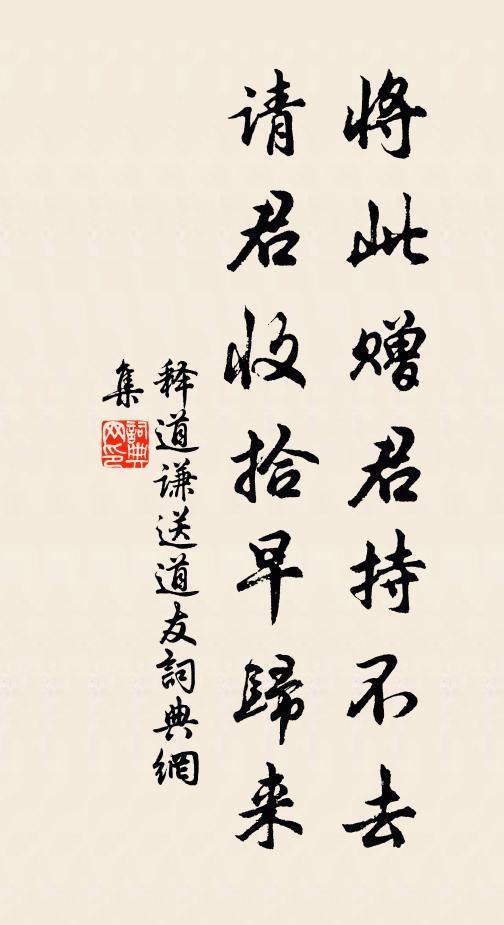 将此赠君持不去
请君收拾早歸来
释道谦送道友詞典網
集
詞典
网印